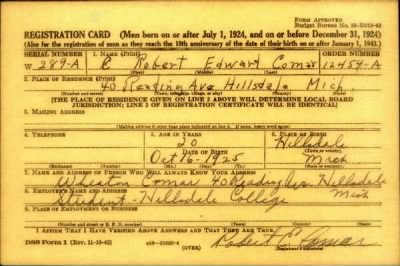 Form Approved
Budget Bureau No. 33-R013-42
REGISTRATION CARD (Men born on or after July 1, 1924, and on or before December 31, 1924)
(Also for the registration of men as they reach the 18th anniversary of the date of their birth on or after January 1, 1943.)
SERIAL NUMBER 1. NAME (Print) ORDER NUMBER
W 289-A Robert Edward Comar 12454-A
(First) (Middle) (Last)
2. PLACE OF RESIDENCE (Print)
40 Reading Ave Hillsdale Mich.
(Number and street) (Town, township, village, or city) (County) (State)
[THE PLACE OF RESIDENCE GIVEN ON LINE 2 ABOVE WILL DETERMINE LOCAL BOARD
JURISDICTION; LINE 2 OF REGISTRATION CERTIFICATE WILL BE IDENTICAL]
3. MAILING ADDRESS
[Mailing address if other than place indicated on line 2. If same, insert word same]
4. TELEPHONE 5. AGE IN YEARS 6. PLACE OF BIRTH
20 Hillsdale
DATE OF BIRTH (Town or county)
Oct 16 - 1925 Mich
(Exchange) (Number) (Mo.) (Day) (Yr.) (State or country)
7. NAME AND ADDRESS OF PERSON WHO WILL ALWAYS KNOW YOUR ADDRESS
Wheaton Comar 40 Reading Ave Hillsdale Mich
8. EMPLOYER'S NAME AND ADDRESS
Student - Hillsdale College
9. PLACE OF EMPLOYMENT OR BUSINESS
(Number and street or R. F. D. number) (Town) (County) (State)
I AFFIRM THAT I HAVE VERIFIED ABOVE ANSWERS AND THAT THEY ARE TRUE.
DSS Form 1 (Rev. 11-16-42) (OVER) Robert E. Comar